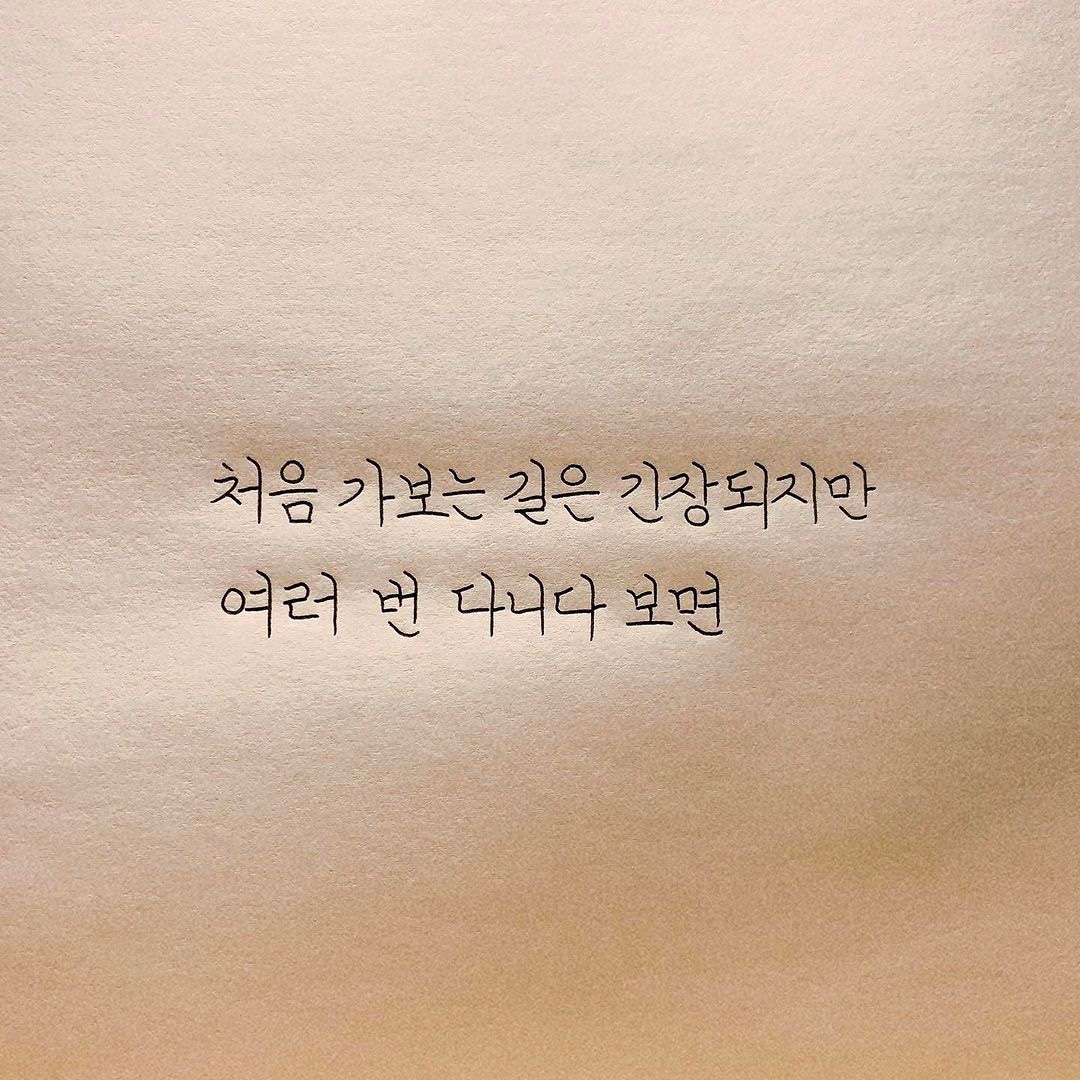 처음 가보는 길은 긴장되지만
여러 번 다니다 보면